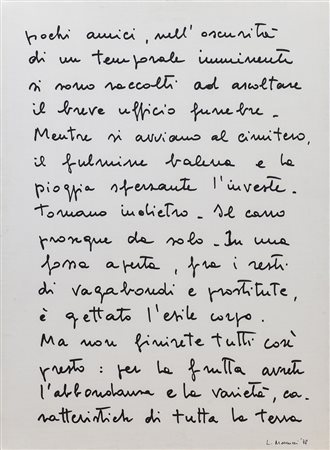 pochi amici, nell'oscurità
di un temporale imminente
si sono raccolti ad ascoltare
il breve ufficio funebre.
Mentre si avviano al cimitero,
il fulmine balena e la
pioggia sferzante l'investe.
Tornano indietro. Il carro
prosegue da solo. In una
fossa aperta, fra i resti
di vagabondi e prostitute,
è gettato l'esile corpo.
Ma non finirete tutti così
presto: per la frutta avrete
l'abbondanza e la varietà, ca-
ratteristich di tutta la terra
L.